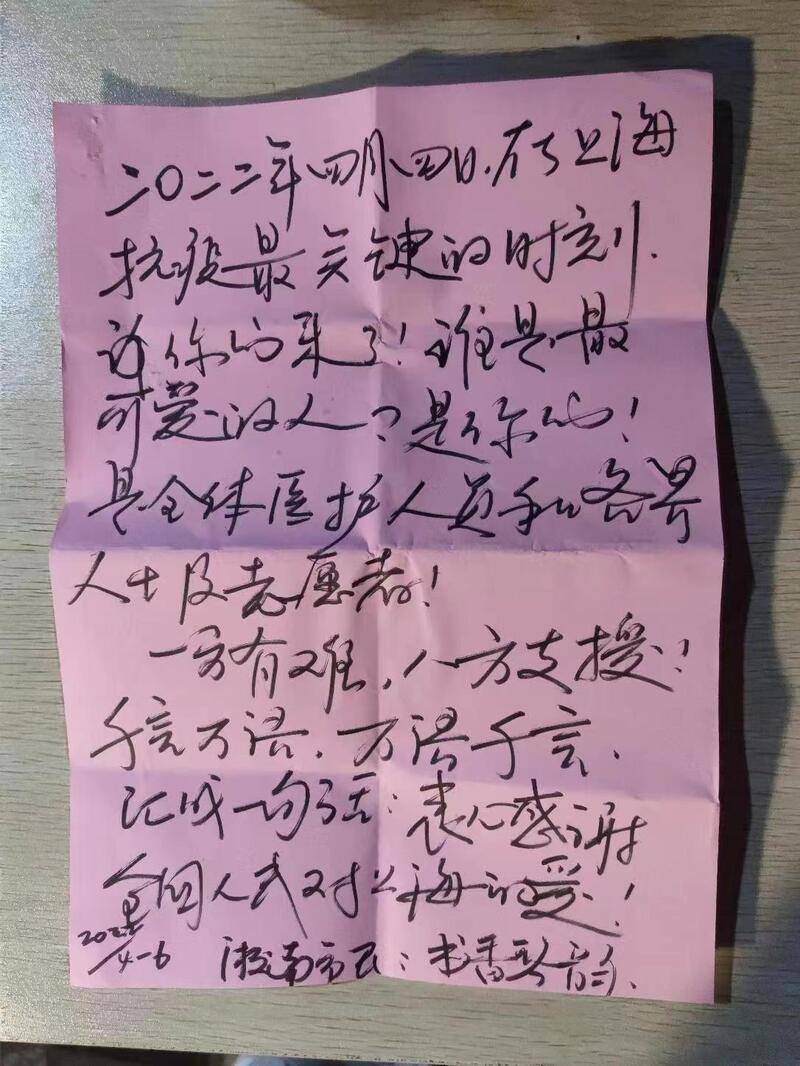 二〇二二年四月四日.在上海
抗疫最关键的时刻.
你们来了!谁是最
可爱的人?是你们!
是全体医护人员和各界
人士及志愿者!
一方有难,八方支援!
千言万语、万语千言、
汇成一句话:衷心感谢
全国人民对上海的爱!
2022
4-6 淞南市民:书香琴韵.